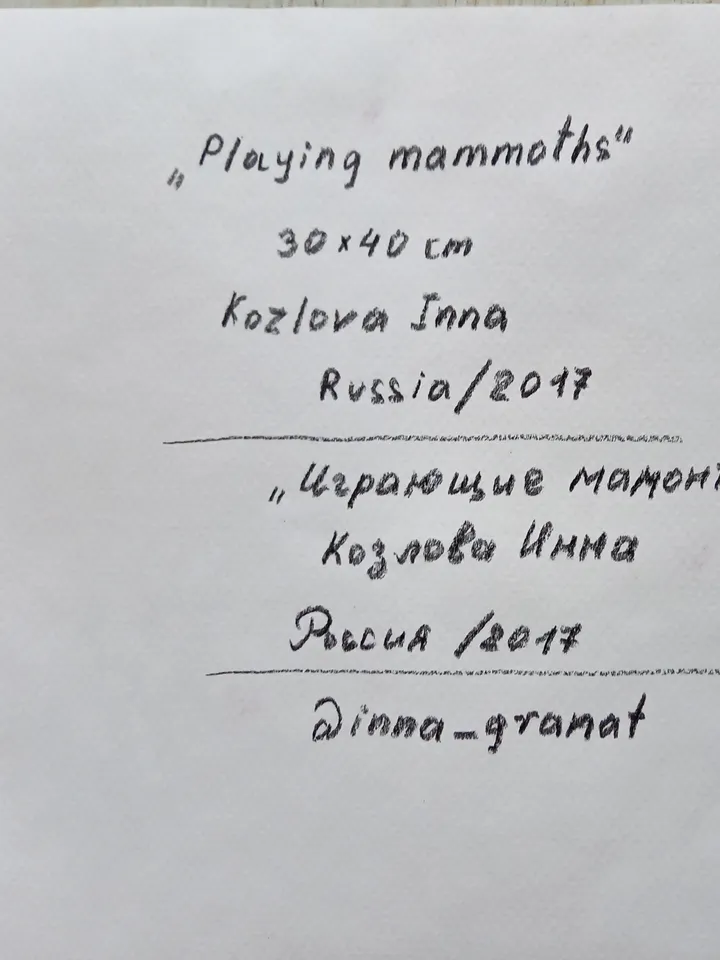 „Playing mammoths“
30×40 cm
Kozlova Inna
Russia/2017
„Играющие
Козлова Инна
Россия /2017
@inna_granat